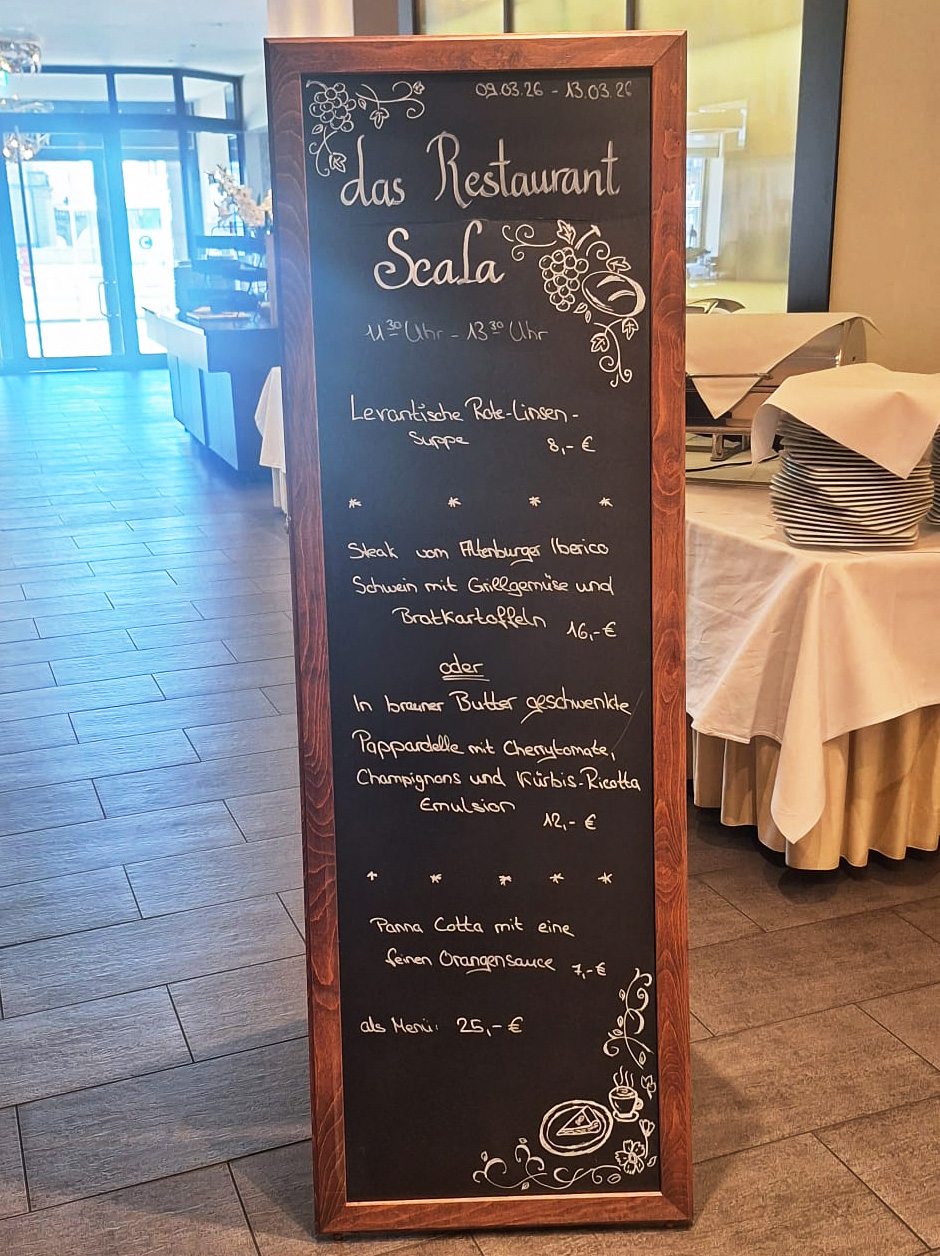 09.03.26 - 13.03.26
das Restaurant
Scala
11³⁰ Uhr - 13³⁰ Uhr
Levantische Rote-Linsen-
Suppe 8,- €
* * * *
Steak vom Altenburger Iberico
Schwein mit Grillgemüse und
Bratkartoffeln 16,- €
oder
In brauner Butter geschwenkte
Pappardelle mit Cherrytomate,
Champignons und Kürbis-Ricotta
Emulsion 12,- €
* * * * *
Panna Cotta mit eine
feinen Orangensauce 7,- €
als Menü: 25,- €